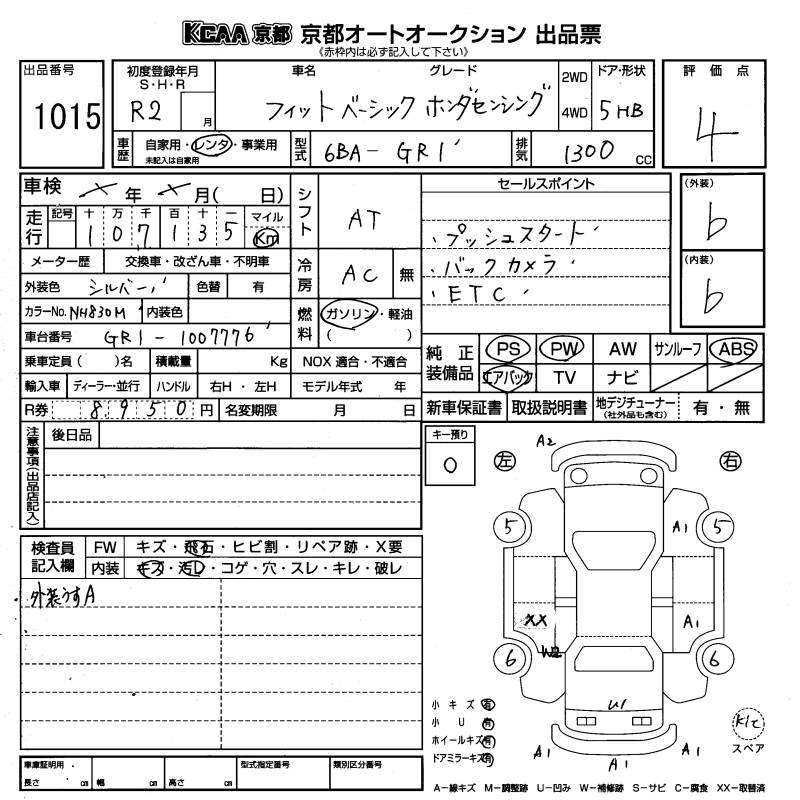 KCAA 京都 京都オートオークション 出品票
《赤枠内は必ず記入して下さい》
出品番号 1015
初度登録年月 S・H・R R2 月
車名 グレード
フィット ベーシック ホンダセンシング
2WD 4WD
ドア・形状 5HB
評価点 4
車歴 自家用・レンタ・事業用
未記入は自家用
型式 6BA-GR1
排気 1300 CC
車検 年 月( 日)
シフト AT
走行 記号 十 万 千 百 十 一 マイル Km
107135
メーター歴 交換車・改ざん車・不明車
冷房 AC 無
外装色 シルバー 色替 有
カラーNo. NH830M 内装色
燃料 ガソリン・軽油 ( )
車台番号 GR1-1007776
乗車定員( )名 積載量 Kg NOX 適合・不適合
輸入車 ディーラー・並行 ハンドル 右H・左H モデル年式 年
R券 8950円 名変期限 月 日
セールスポイント
・プッシュスタート
・バックカメラ
・ETC
(外装) b
(内装) b
純正装備品 PS PW AW サンルーフ ABS
エアバック TV ナビ
新車保証書 取扱説明書 地デジチューナー (社外品も含む) 有・無
注意事項(出品店記入)
後日品
キー預り 0
左 右
A2
5 A1 5
XX A1
6 W2 6
U1
A1 A1 A1
検査員記入欄
FW キズ・飛石・ヒビ割・リペア跡・X要
内装 キズ・汚レ・コゲ・穴・スレ・キレ・破レ
外装うすA
小キズ 有
小U 有
ホイールキズ 有
ドアミラーキズ 有
スペア
車庫証明用・ 長さ cm 幅 cm 高さ cm
型式指定番号 類別区分番号
A-線キズ M-調整跡 U-凹み W-補修跡 S-サビ C-腐食 XX-取替済